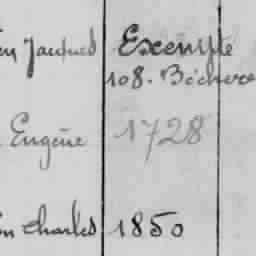 en Jacques Exempte
108. Bicherc
Eugène 1728
on Charles 1850